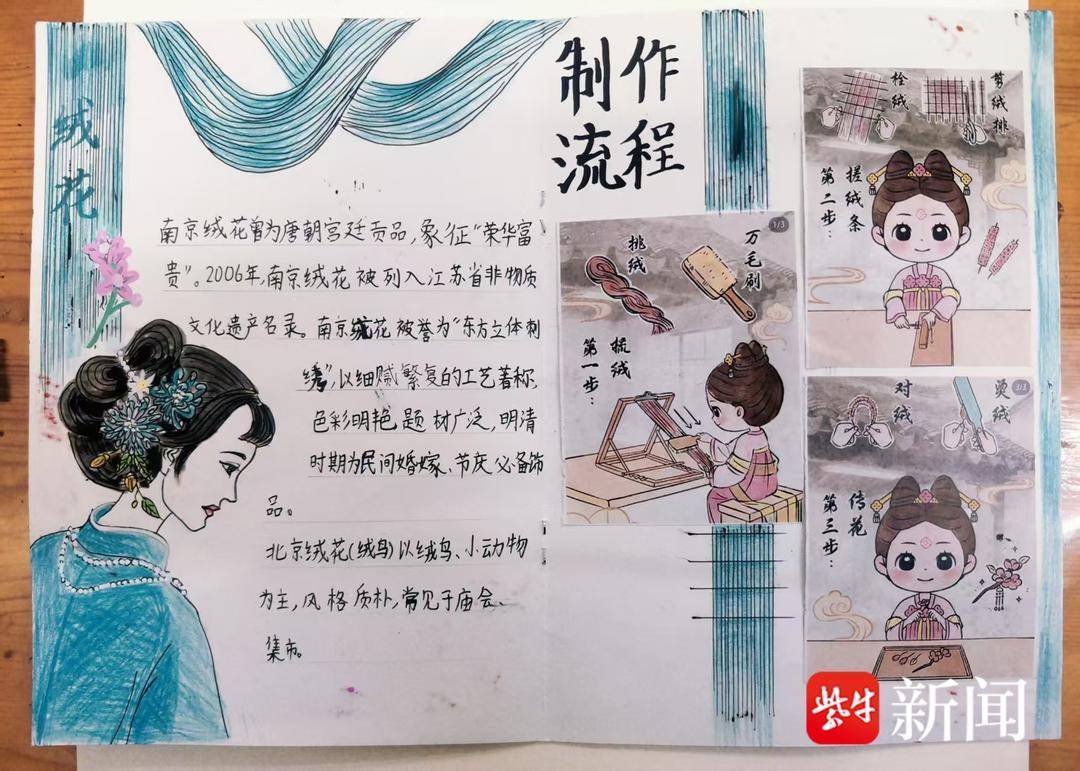 绒花
南京绒花曾为唐朝宫廷贡品，象征“荣华富
贵”。2006年，南京绒花被列入江苏省非物质
文化遗产名录。南京绒花被誉为“东方立体刺
绣”，以细腻繁复的工艺著称，
色彩明艳，题材广泛，明清
时期为民间婚嫁、节庆必备饰
品。
北京绒花（绒鸟）以绒鸟、小动物
为主，风格质朴，常见于庙会、
集市。
制作
流程
1/3
挑绒
万毛刷
第一步：
梳绒
拴绒
剪绒排
第二步：
搓绒条
3/3
对绒
烫绒
第三步：
传花
紫牛新闻